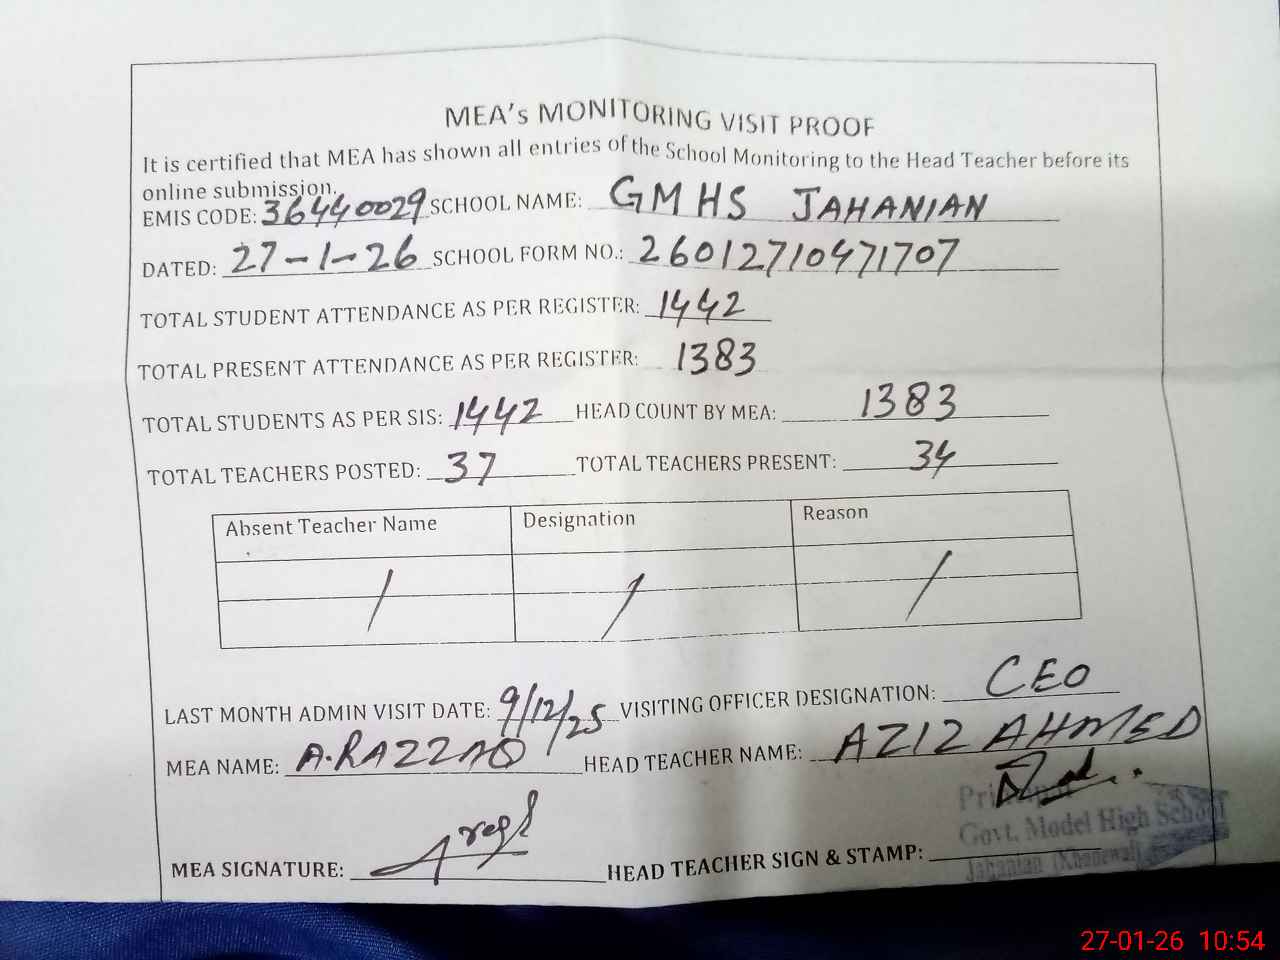 MEA's MONITORING VISIT PROOF
It is certified that MEA has shown all entries of the School Monitoring to the Head Teacher before its
online submission.
EMIS CODE: 36440029 SCHOOL NAME: GMHS JAHANIAN
DATED: 27-1-26 SCHOOL FORM NO.: 26012710471707
TOTAL STUDENT ATTENDANCE AS PER REGISTER: 1442
TOTAL PRESENT ATTENDANCE AS PER REGISTER: 1383
TOTAL STUDENTS AS PER SIS: 1442 HEAD COUNT BY MEA: 1383
TOTAL TEACHERS POSTED: 37 TOTAL TEACHERS PRESENT: 34
Absent Teacher Name Designation Reason
/ / /
LAST MONTH ADMIN VISIT DATE: 9/12/25 VISITING OFFICER DESIGNATION: CEO
MEA NAME: A.RAZZAQ HEAD TEACHER NAME: AZIZ AHMED
MEA SIGNATURE: HEAD TEACHER SIGN & STAMP:
Principal
Govt. Model High School
Jahanian (Khanewal)
27-01-26 10:54